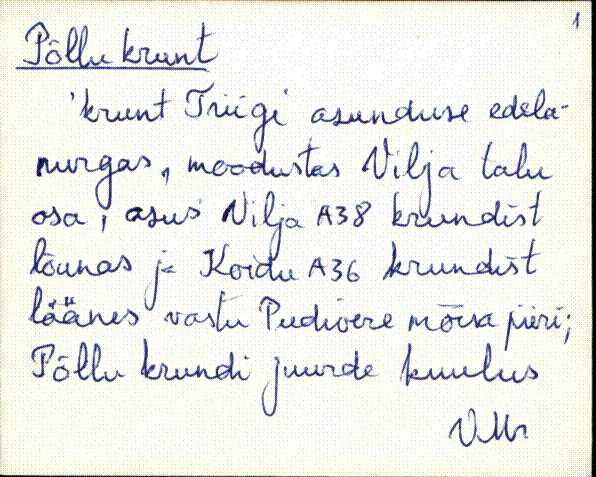 1
Põllu krunt
'krunt Triigi asunduse edela-
nurgas, moodustas Vilja talu
osa, asus Vilja A38 krundist
lõunas ja Koidu A36 krundist
läänes vastu Pudivere mõisa piiri;
Põllu krundi juurde kuulus
VMr